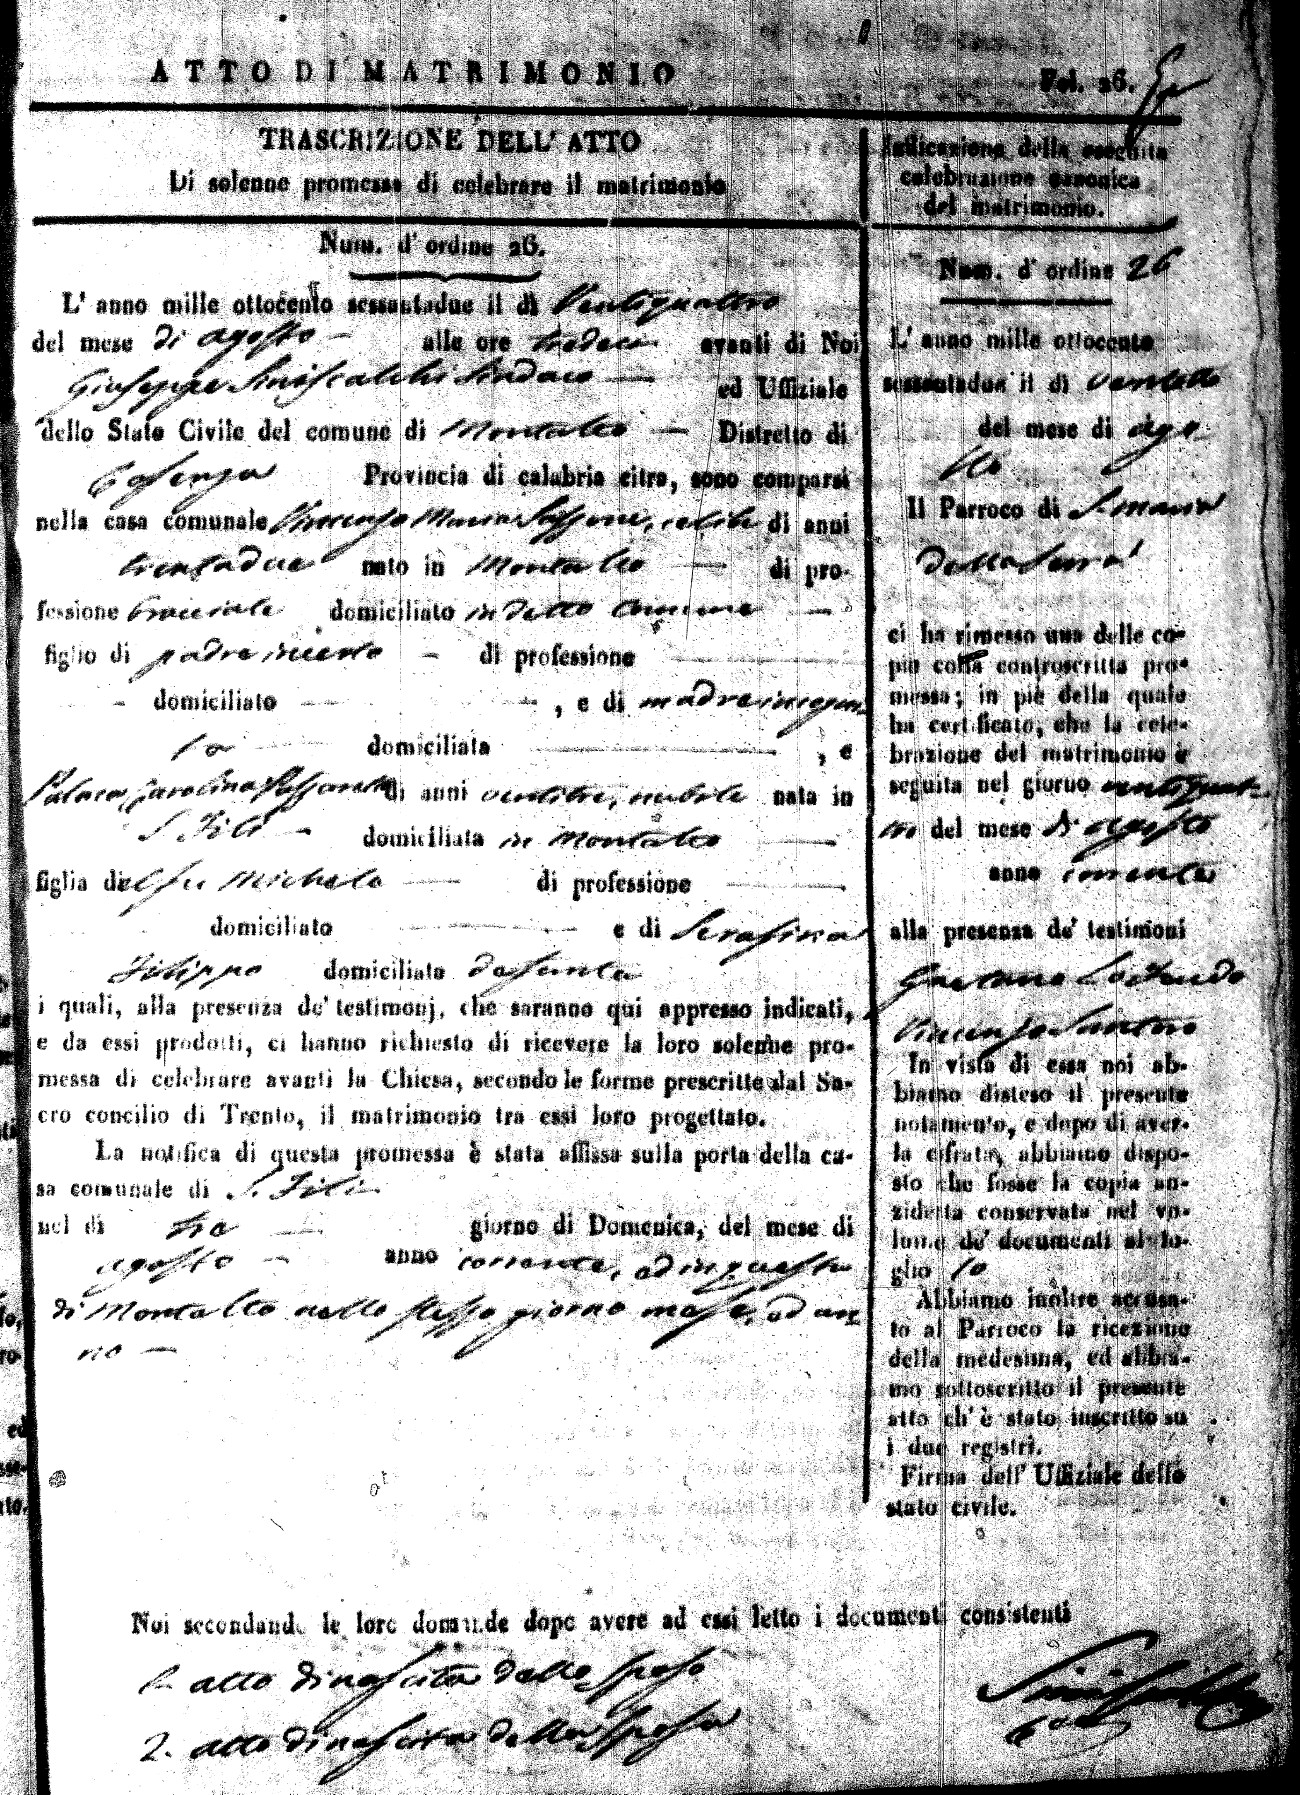 ATTO DI MATRIMONIO
Fol. 26.
TRASCRIZIONE DELL' ATTO
Di solenne promessa di celebrare il matrimonio
Num. d' ordine 26.
L' anno mille ottocento sessantadue il dì Ventiquattro
del mese di agosto — alle ore tredeci avanti di Noi
Giuseppe Siniscalchi Sindaco — ed Uffiziale
dello Stato Civile del comune di Montalto — Distretto di
Cosenza Provincia di calabria citra, sono comparsi
nella casa comunale Vincenzo Maria celibe di anni
trentadue nato in Montalto — di pro-
fessione bracciale domiciliato in detto comune —
figlio di padre incerto — di professione —
- domiciliato — , e di madre incogni-
ta domiciliata — , e
Carolina di anni ventitre, nubile nata in
S. Fili — domiciliata in Montalto —
figlia del fu Michele — di professione —
domiciliato — e di Serafina
Filippo domiciliata defunta
i quali, alla presenza de' testimonj, che saranno qui appresso indicati,
e da essi prodotti, ci hanno richiesto di ricevere la loro solenne pro-
messa di celebrare avanti la Chiesa, secondo le forme prescritte dal Sa-
cro concilio di Trento, il matrimonio tra essi loro progettato.
La notifica di questa promessa è stata affissa sulla porta della ca-
sa comunale di S. Fili
nel dì tre — giorno di Domenica, del mese di
agosto — anno corrente, ed in questa
di Montalto nello stesso giorno mese, ed an-
no —
Indicazione della eseguita
celebrazione canonica
del matrimonio.
Num. d' ordine 26
L' anno mille ottocento
sessantadue il dì ventotto
del mese di ago-
sto
Il Parroco di S. Maria
della Serra
ci ha rimesso una delle co-
pie colla controscritta pro-
messa; in piè della quale
ha certificato, che la cele-
brazione del matrimonio è
seguita nel giorno ventiquat-
tro del mese di agosto
anno corrente
alla presenza de' testimoni
Gaetano
Vincenzo Santoro
In vista di essa noi ab-
biamo disteso il presente
notamento, e dopo di aver-
la cifrata, abbiamo dispo-
sto che fosse la copia an-
zidetta conservata nel vo-
lume de' documenti al fo-
glio 10
Abbiamo inoltre accusa-
to al Parroco la ricezione
della medesima, ed abbia-
mo sottoscritto il presente
atto ch' è stato inscritto su
i due registri.
Firma dell' Uffiziale dello
stato civile.
Noi secondando le loro domande dopo avere ad essi letto i documenti consistenti
1. atto di nascita dello sposo
2. atto di nascita della sposa
Siniscalchi